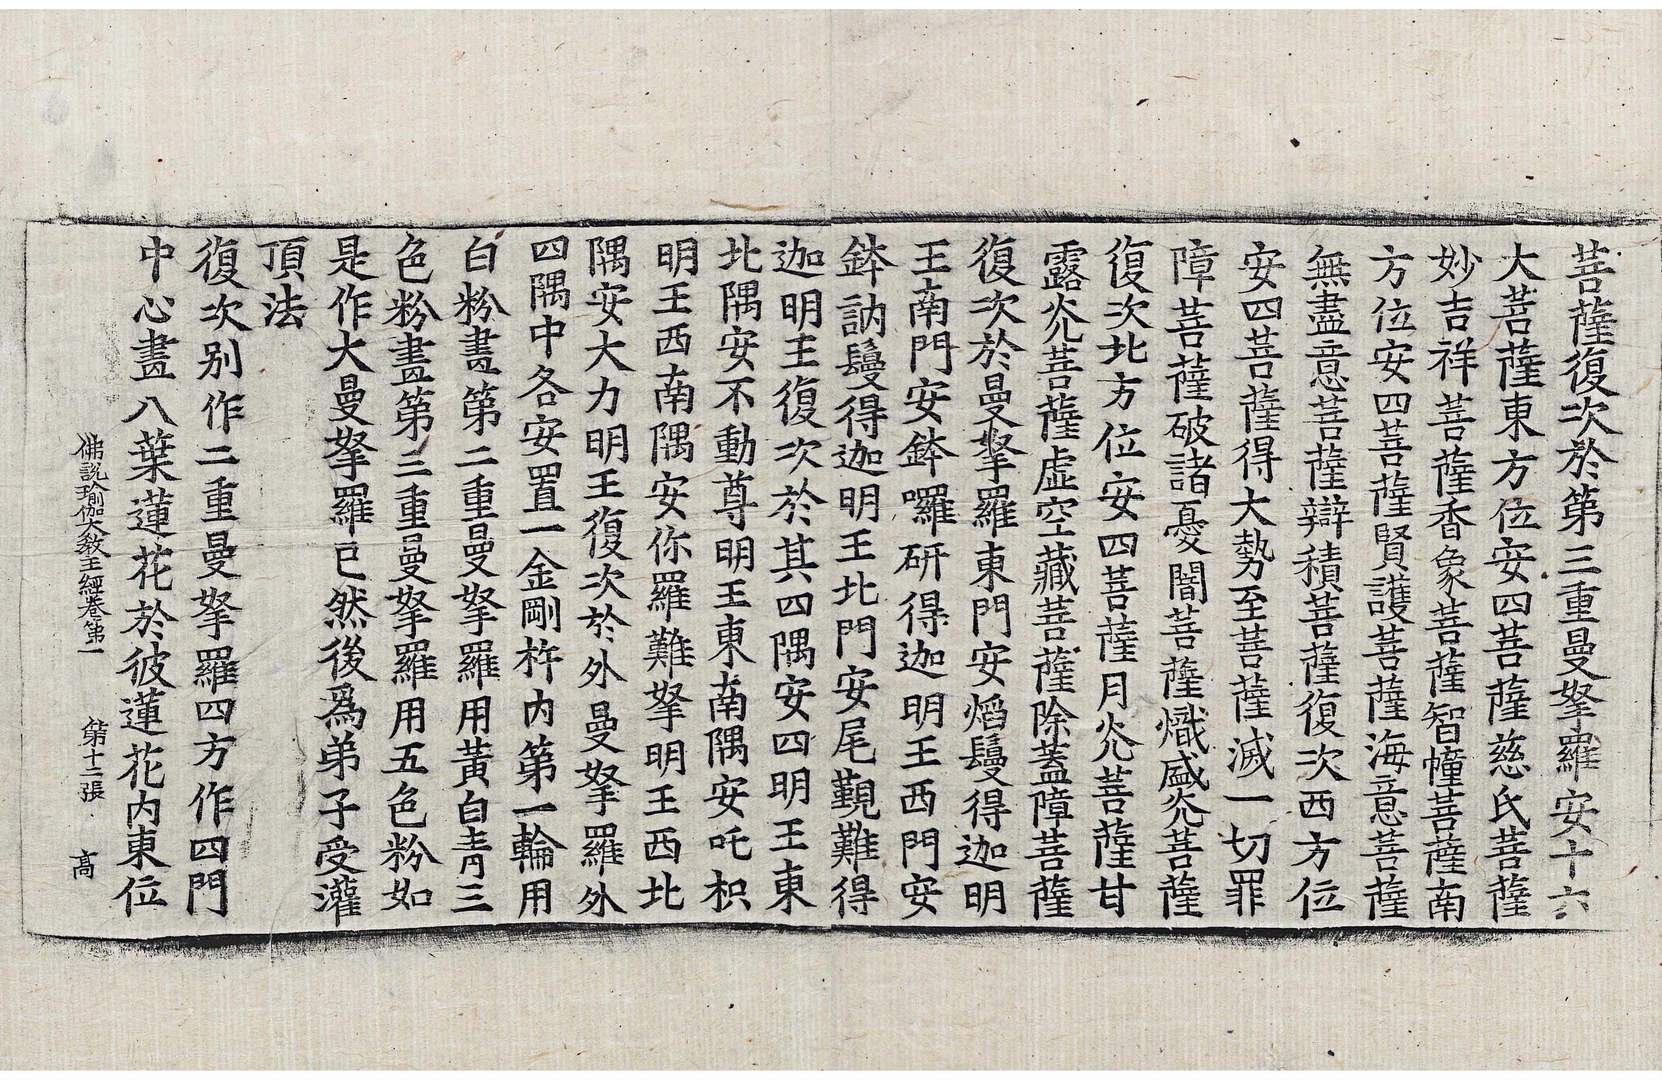 菩薩復次於第三重曼拏羅安十六
大菩薩東方位安四菩薩慈氏菩薩
妙吉祥菩薩香象菩薩智幢菩薩南
方位安四菩薩賢護菩薩海意菩薩
無盡意菩薩辯積菩薩復次西方位
安四菩薩得大勢至菩薩滅一切罪
障菩薩破諸憂闇菩薩熾盛光菩薩
復次北方位安四菩薩月光菩薩甘
露光菩薩虛空藏菩薩除蓋障菩薩
復次於曼拏羅東門安焰鬘得迦明
王南門安鉢囉研得迦明王西門安
鉢訥鬘得迦明王北門安尾覲難得
迦明王復次於其四隅安四明王東
北隅安不動尊明王東南隅安吒枳
明王西南隅安你羅難拏明王西北
隅安大力明王復次於外曼拏羅外
四隅中各安置一金剛杵內第一輪用
白粉畫第二重曼拏羅用黃白青三
色粉畫第三重曼拏羅用五色粉如
是作大曼拏羅已然後爲弟子受灌
頂法
復次別作二重曼拏羅四方作四門
中心畫八葉蓮花於彼蓮花內東位
佛說瑜伽大敎王經卷第一 第十二張 高